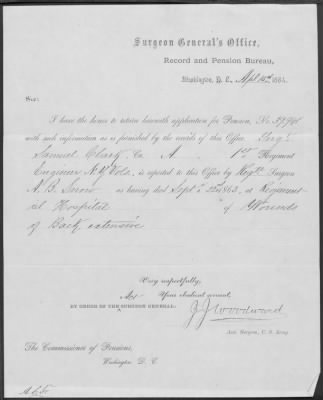 Surgeon General's Office,
Record and Pension Bureau,
Washington, D. C., Apl 15th, 1864.
Sir:
I have the honor to return herewith application for Pension, No.
with such information as is furnished by the records of this Office. Serg't
Samuel Clark, Co. A 1st Regiment
Engineer N.Y. Vols., is reported to this Office by Reg'tl Surgeon
as having died Sept. 22d 1863, at Regiment-
al Hospital of Wounds
of Back extensive
Very respectfully,
Your obedient servant,
BY ORDER OF THE SURGEON GENERAL:
J J Woodward
Ass. Surgeon, U. S. Army.
The Commissioner of Pensions,
Washington, D. C.